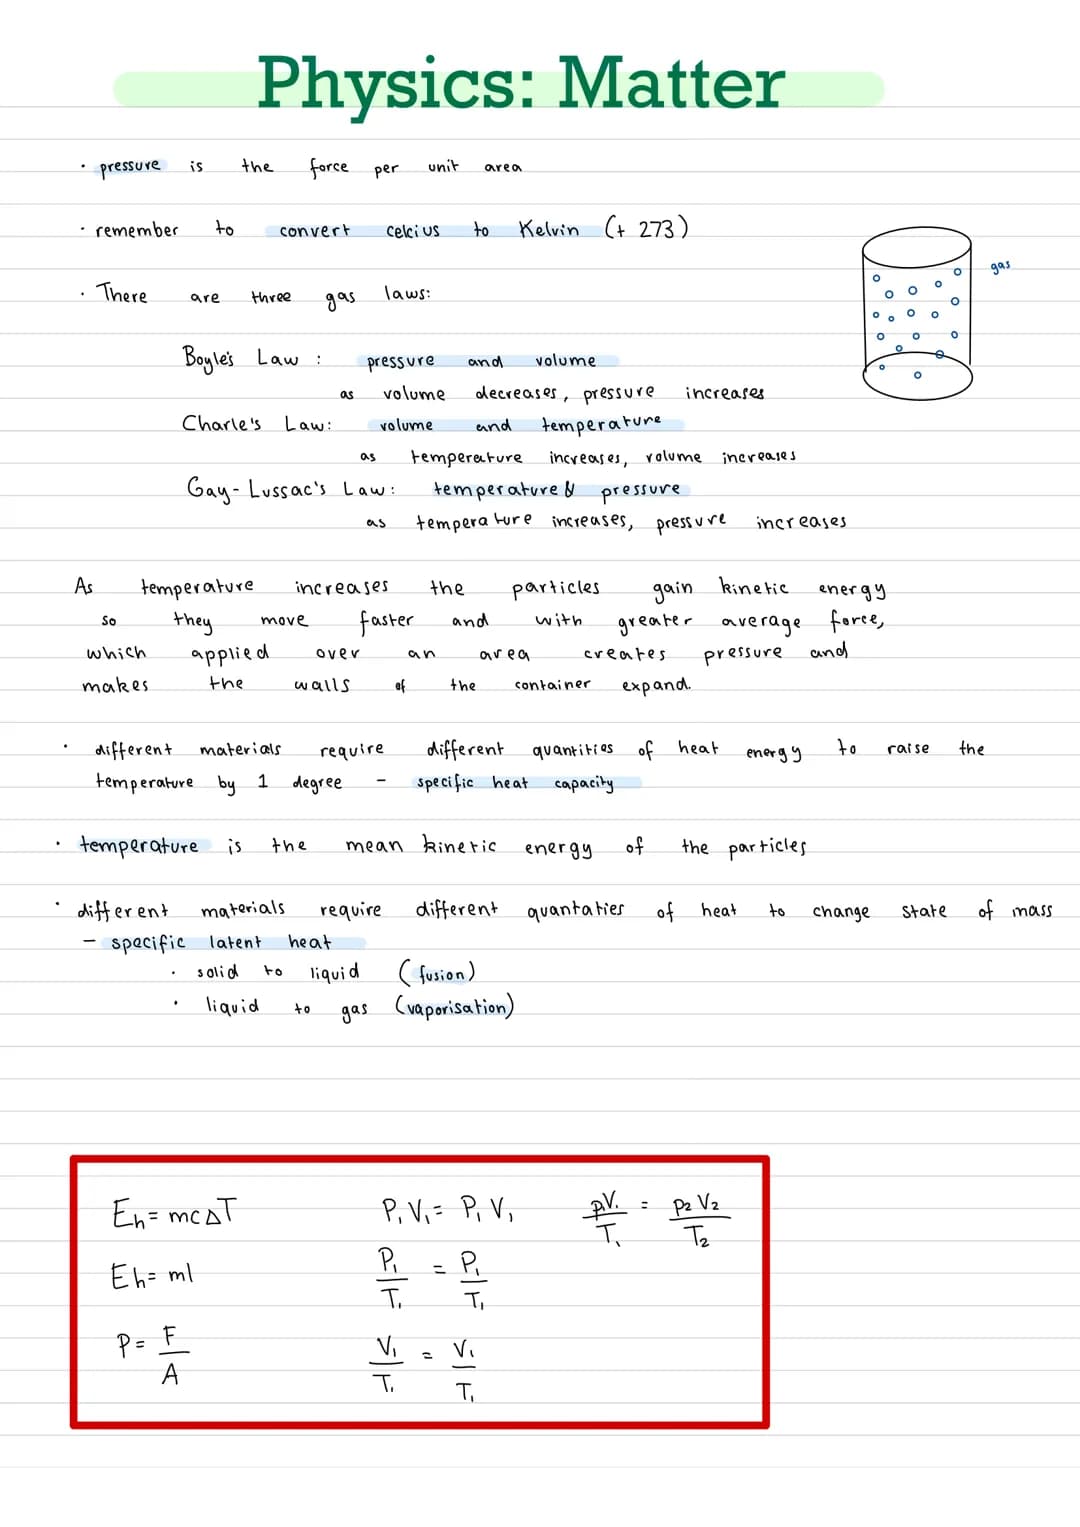 Physics: Matter
· pressure is the force per unit area
· remember to convert celcius to Kelvin (+ 273)
gas
· There are three gas laws:
Boyle's Law : pressure and volume
as volume decreases, pressure increases
Charle's Law: volume and temperature
as temperature increases, volume increases
Gay-Lussac's Law: temperature & pressure
as temperature increases, pressure increases
As temperature increases the particles gain kinetic energy
so they move faster and with greater average force,
which applied over an area creates pressure and
makes the walls of the container expand.
· different materials require different quantities of heat energy to raise the
temperature by 1 degree - specific heat capacity
· temperature is the mean kinetic energy of the particles
· different materials require different quantaties of heat to change state of mass
- specific latent heat
· solid to liquid (fusion)
· liquid to gas (vaporisation)
Eh = mcΔT P₁V₁ = P₁V₁ pV₁/T₁ = P₂V₂/T₂
Eh = ml P₁/T₁ = P₁/T₁
P = F/A V₁/T₁ = V₁/T₁